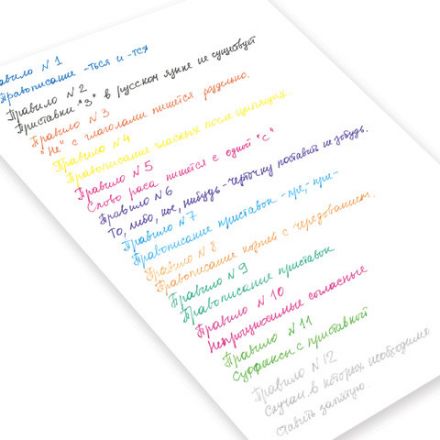 Правило №1
Правописание -ться и -тся
Правило №2
Приставки "З" в русском языке не существует
Правило №3
"Не" с глаголами пишется раздельно.
Правило №4
Правописание гласных после шипящих.
Правило №5
Слово раса пишется с одной "с"
Правило №6
То, либо, кое, нибудь - черточку поставить не забудь.
Правило №7
Правописание приставок -пре, при-
Правило №8
Правописание корней с чередованием.
Правило №9
Правописание приставок
Правило №10
Непроизносимые согласные
Правило №11
Суффиксы с приставкой
Правило №12
Случаи, в которых необходимо
ставить запятую.